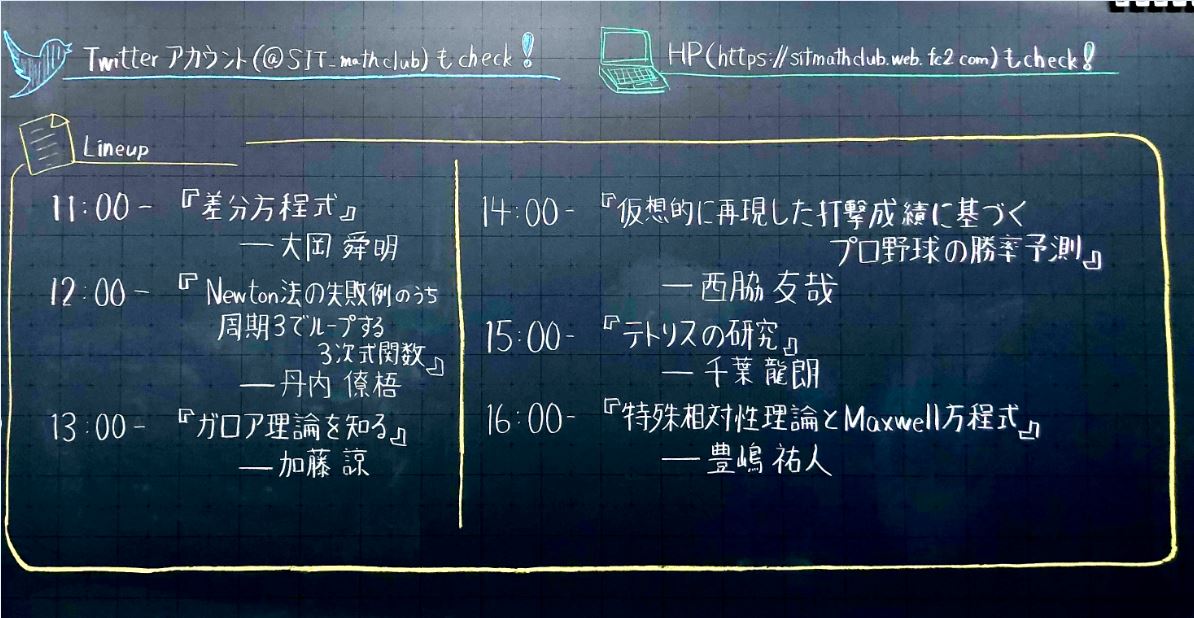 Twitter アカウント(@SIT_mathclub)もcheck!
HP(https://sitmathclub.web.fc2.com)もcheck!
Lineup
11:00- 『差分方程式』
―大岡 舜明
12:00- 『Newton法の失敗例のうち
周期3でループする
3次式関数』
―丹内 僚梧
13:00- 『ガロア理論を知る』
―加藤 諒
14:00- 『仮想的に再現した打撃成績に基づく
プロ野球の勝率予測』
―西脇 友哉
15:00- 『テトリスの研究』
―千葉 龍朗
16:00- 『特殊相対性理論とMaxwell方程式』
―豊嶋 祐人